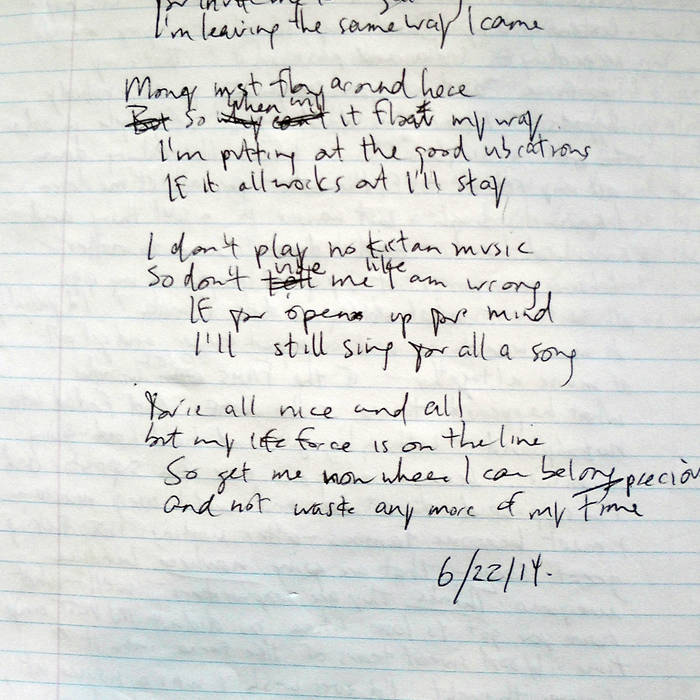 I'm leaving the same way I came
Money mst floy around here
But So why when my can't it float my way
I'm putting at the good vibrations
If it all works at I'll stay
I don't play no kirtan music
So don't tell me like I am wrong
If you opens up your mind
I'll still sing you all a song
You're all nice and all
but my life force is on the line
So get me now where I can belong
and not waste any more of my precious time
6/22/14.